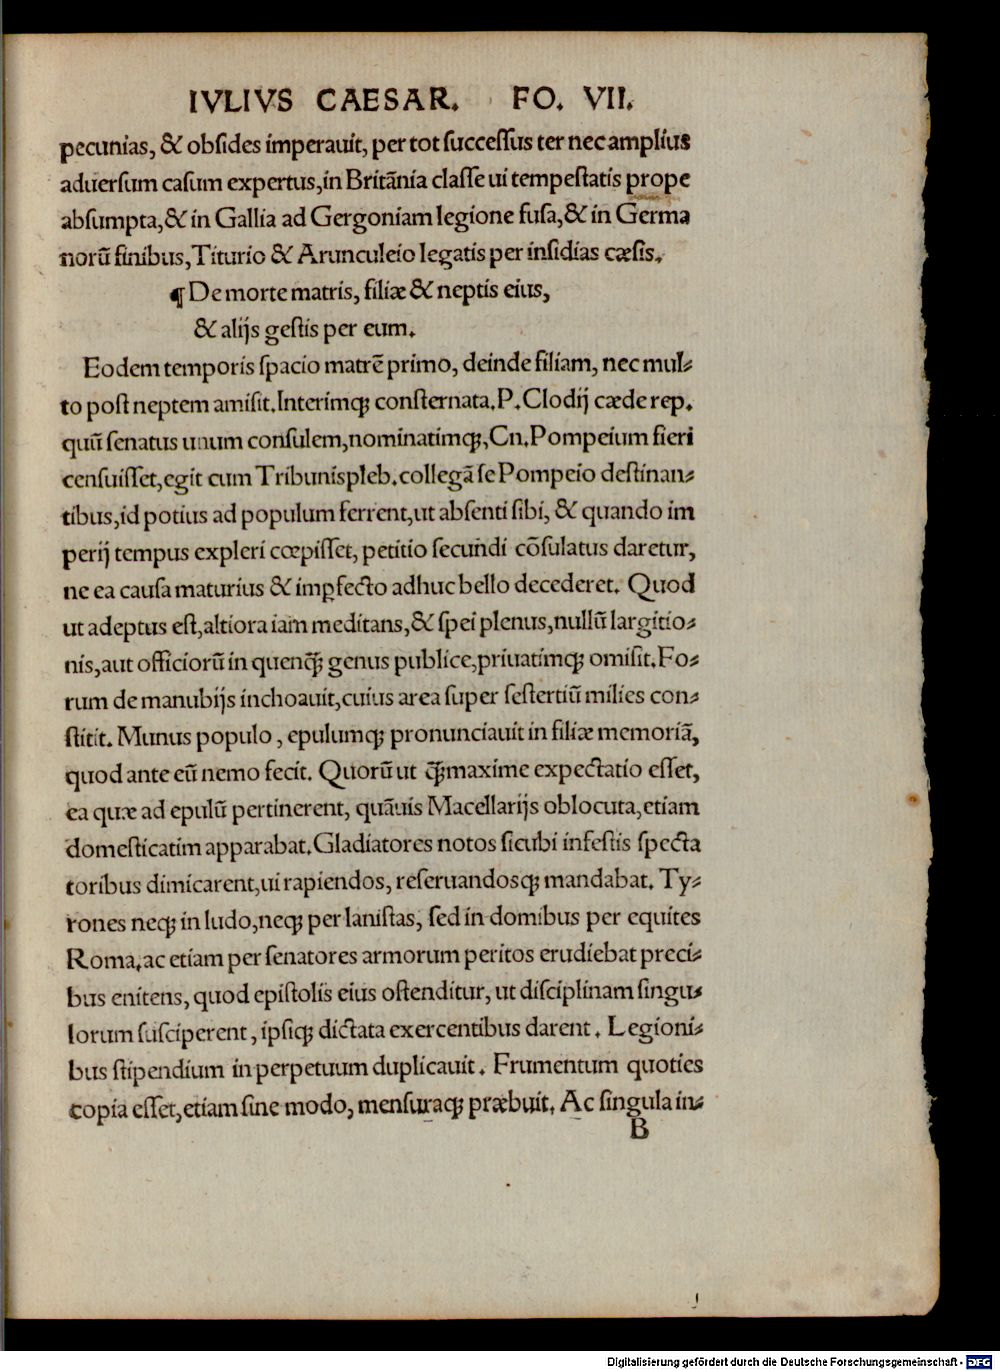 IVLIVS CAESAR. FO. VII.
pecunias, & obsides imperauit, per tot successus ter nec amplius
aduersum casum expertus, in Britãnia classe ui tempestatis prope
absumpta, & in Gallia ad Gergoniam legione fusa, & in Germa
norũ finibus, Titurio & Arunculeio legatis per insidias cæsis.
¶ De morte matris, filiæ & neptis eius,
& alijs gestis per eum.
Eodem temporis spacio matrẽ primo, deinde filiam, nec mul⸗
to post neptem amisit. Interimqꝫ consternata. P. Clodij cæde rep.
quũ senatus unum consulem, nominatimqꝫ, Cn. Pompeium fieri
censuisset, egit cum Tribunis pleb. collegã se Pompeio destinan⸗
tibus, id potius ad populum ferrent, ut absenti sibi, & quando im
perij tempus expleri cœpisset, petitio secundi cõsulatus daretur,
ne ea causa maturius & imꝑfecto adhuc bello decederet. Quod
ut adeptus est, altiora iam meditans, & spei plenus, nullũ largitio⸗
nis, aut officiorũ in quenq̃ꝫ genus publice, priuatimqꝫ omisit. Fo⸗
rum de manubijs inchoauit, cuius area super sestertiũ milies con⸗
stitit. Munus populo, epulumqꝫ pronunciauit in filiæ memoriã,
quod ante eũ nemo fecit. Quorũ ut q̃ꝫ maxime expectatio esset,
ea quæ ad epulũ pertinerent, quãuis Macellarijs oblocuta, etiam
domesticatim apparabat. Gladiatores notos sicubi infestis specta
toribus dimicarent, ui rapiendos, reseruandosqꝫ mandabat. Ty⸗
rones neqꝫ in ludo, neqꝫ per lanistas, sed in domibus per equites
Roma. ac etiam per senatores armorum peritos erudiebat preci⸗
bus enitens, quod epistolis eius ostenditur, ut disciplinam singu⸗
lorum susciperent, ipsiqꝫ dictata exercentibus darent. Legioni⸗
bus stipendium in perpetuum duplicauit. Frumentum quoties
copia esset, etiam sine modo, mensuraqꝫ præbuit. Ac singula in⸗
B
Digitalisierung gefördert durch die Deutsche Forschungsgemeinschaft - DFG